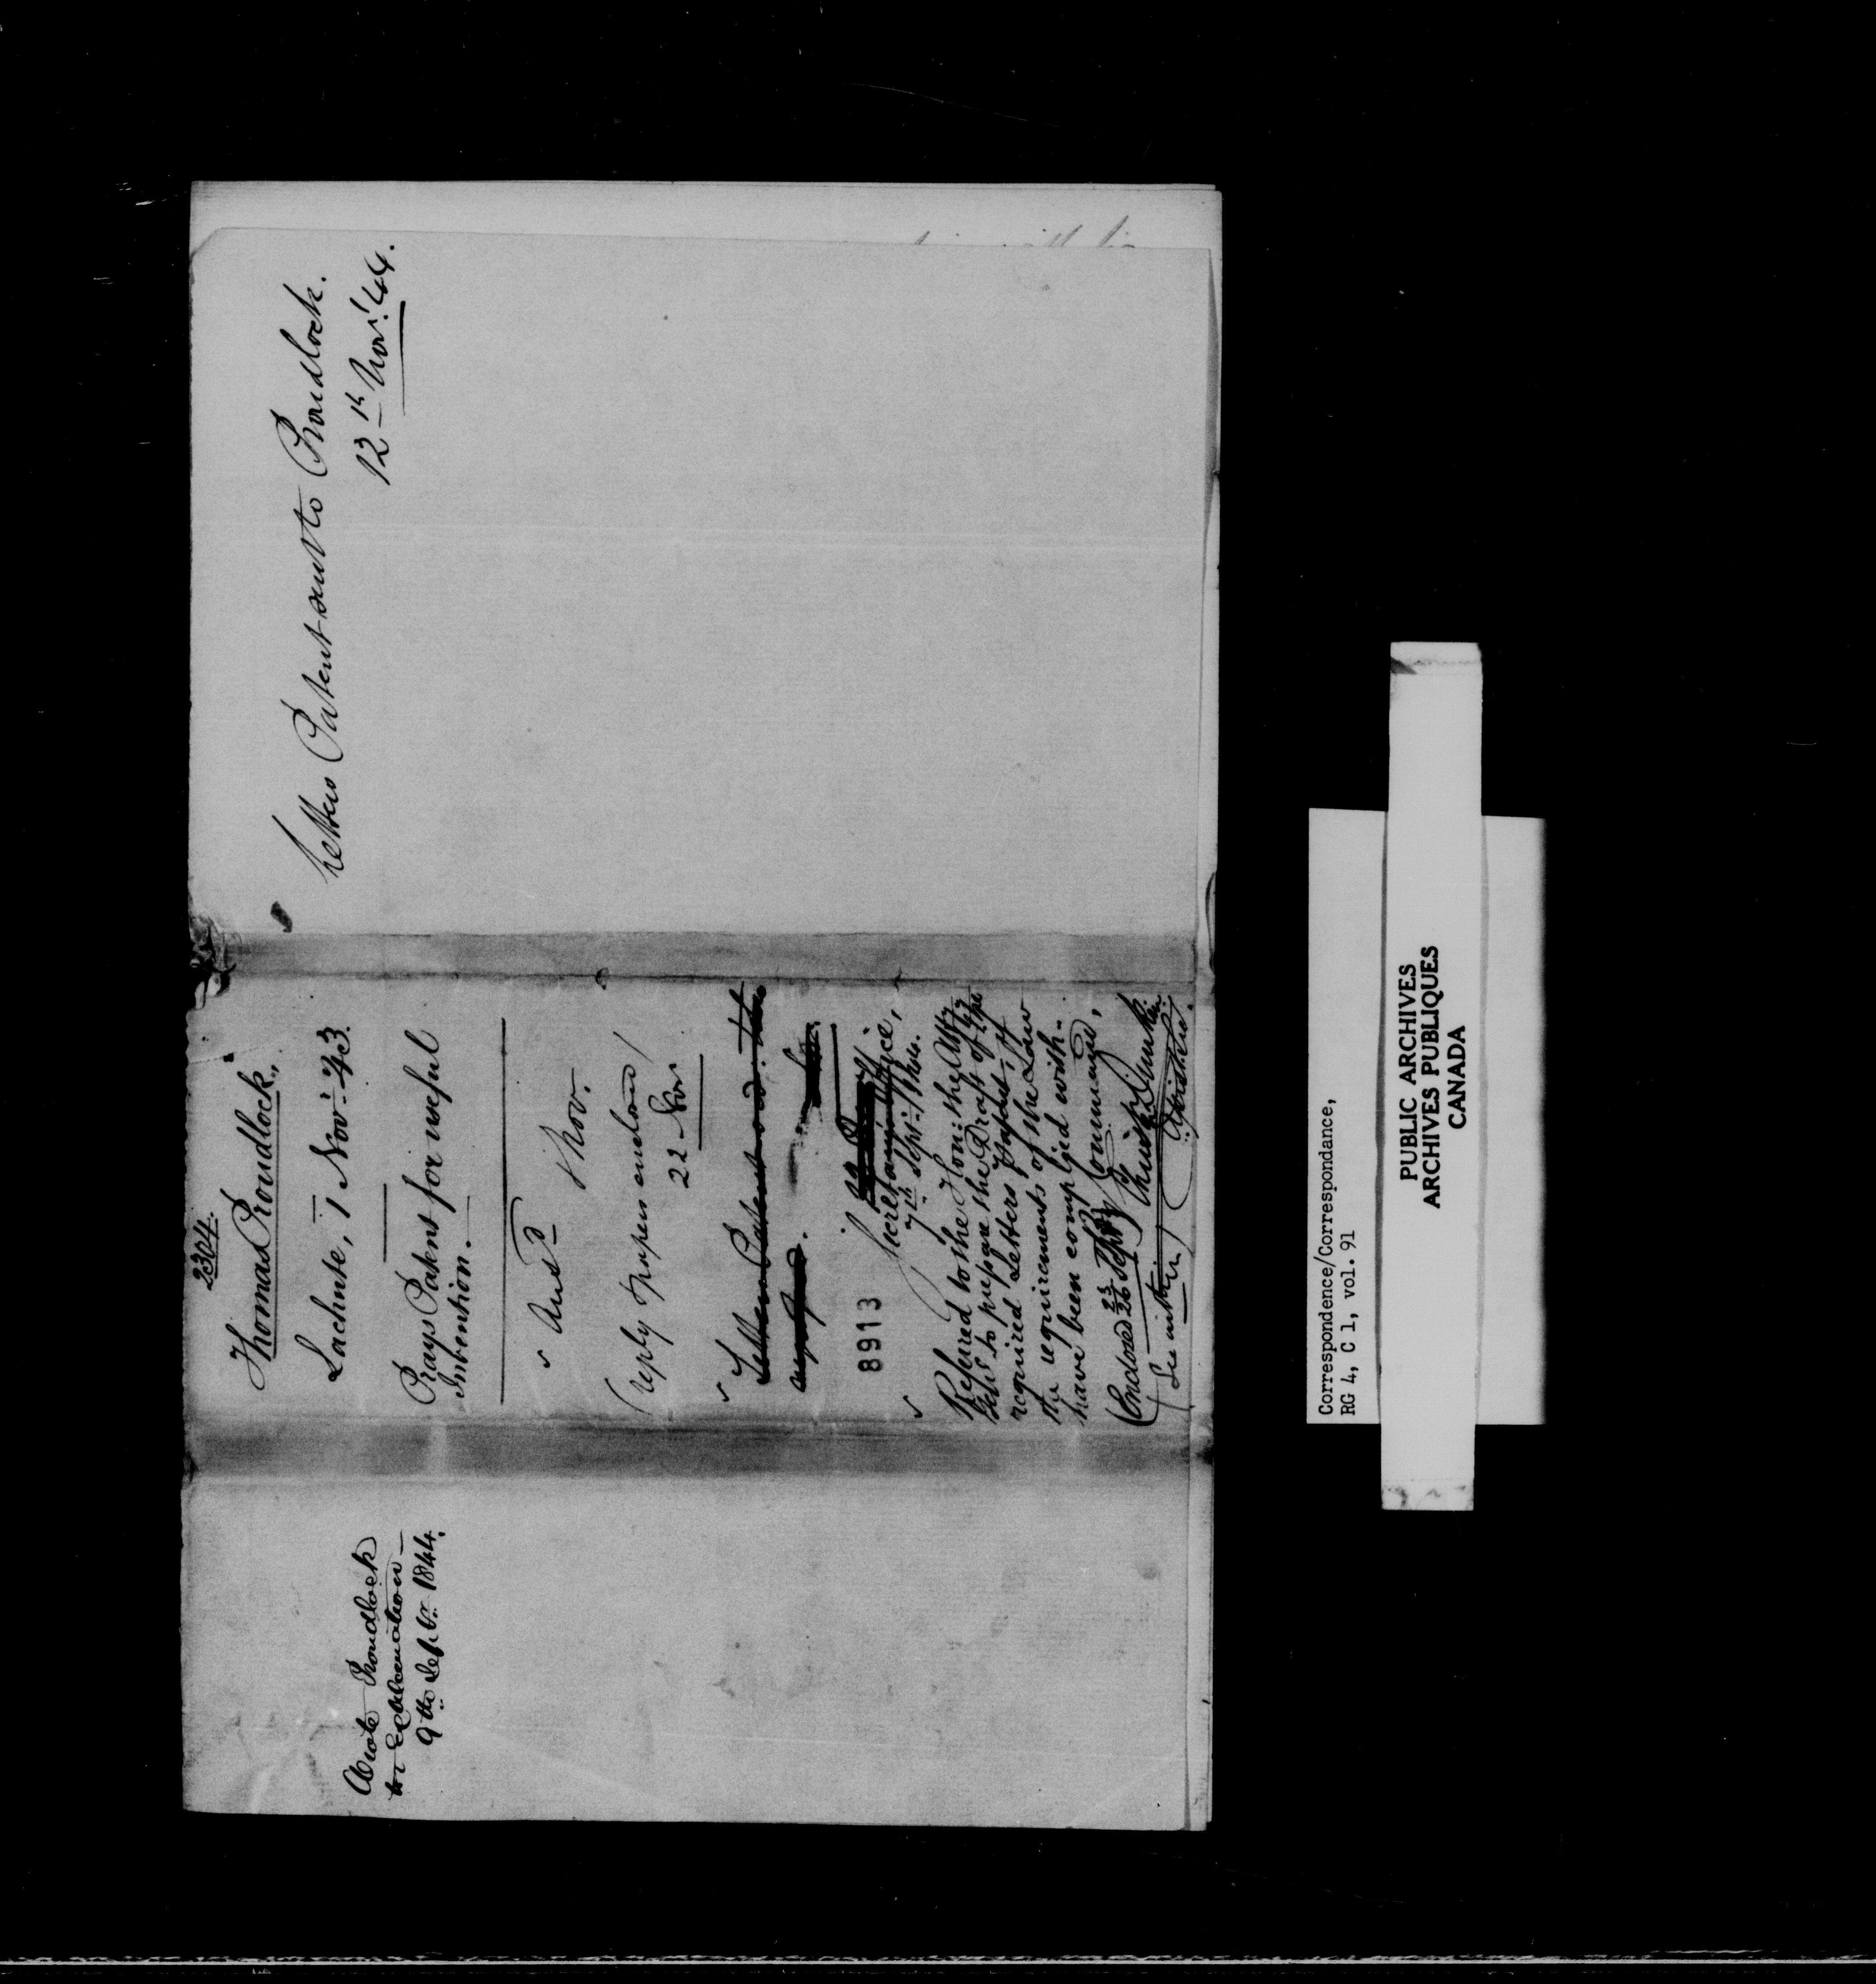 Wrote Proudlock
for Explanation –
9th Septr. 1844.
2304.
Thomas Proudlock,
Lachute, 1 Novr. 43.
Prays Patent for useful
Invention. –
Ansd
8 Nov.
(reply & papers enclosed)
22 Nov
Letters Patent
8913
Secretary's Office,
7th Septr. 1844.
Referred to the Hon: the Atty
Genl to prepare the Draft of the
required Letters Patent, if
the requirements of the Law
have been complied with.
By Command,
Enclosed 26 Sept
(See within)
Letters Patent sent to Proudlock.
12th Novr. '44.
Correspondence/Correspondance,
RG 4, C 1, vol. 91
PUBLIC ARCHIVES
ARCHIVES PUBLIQUES
CANADA